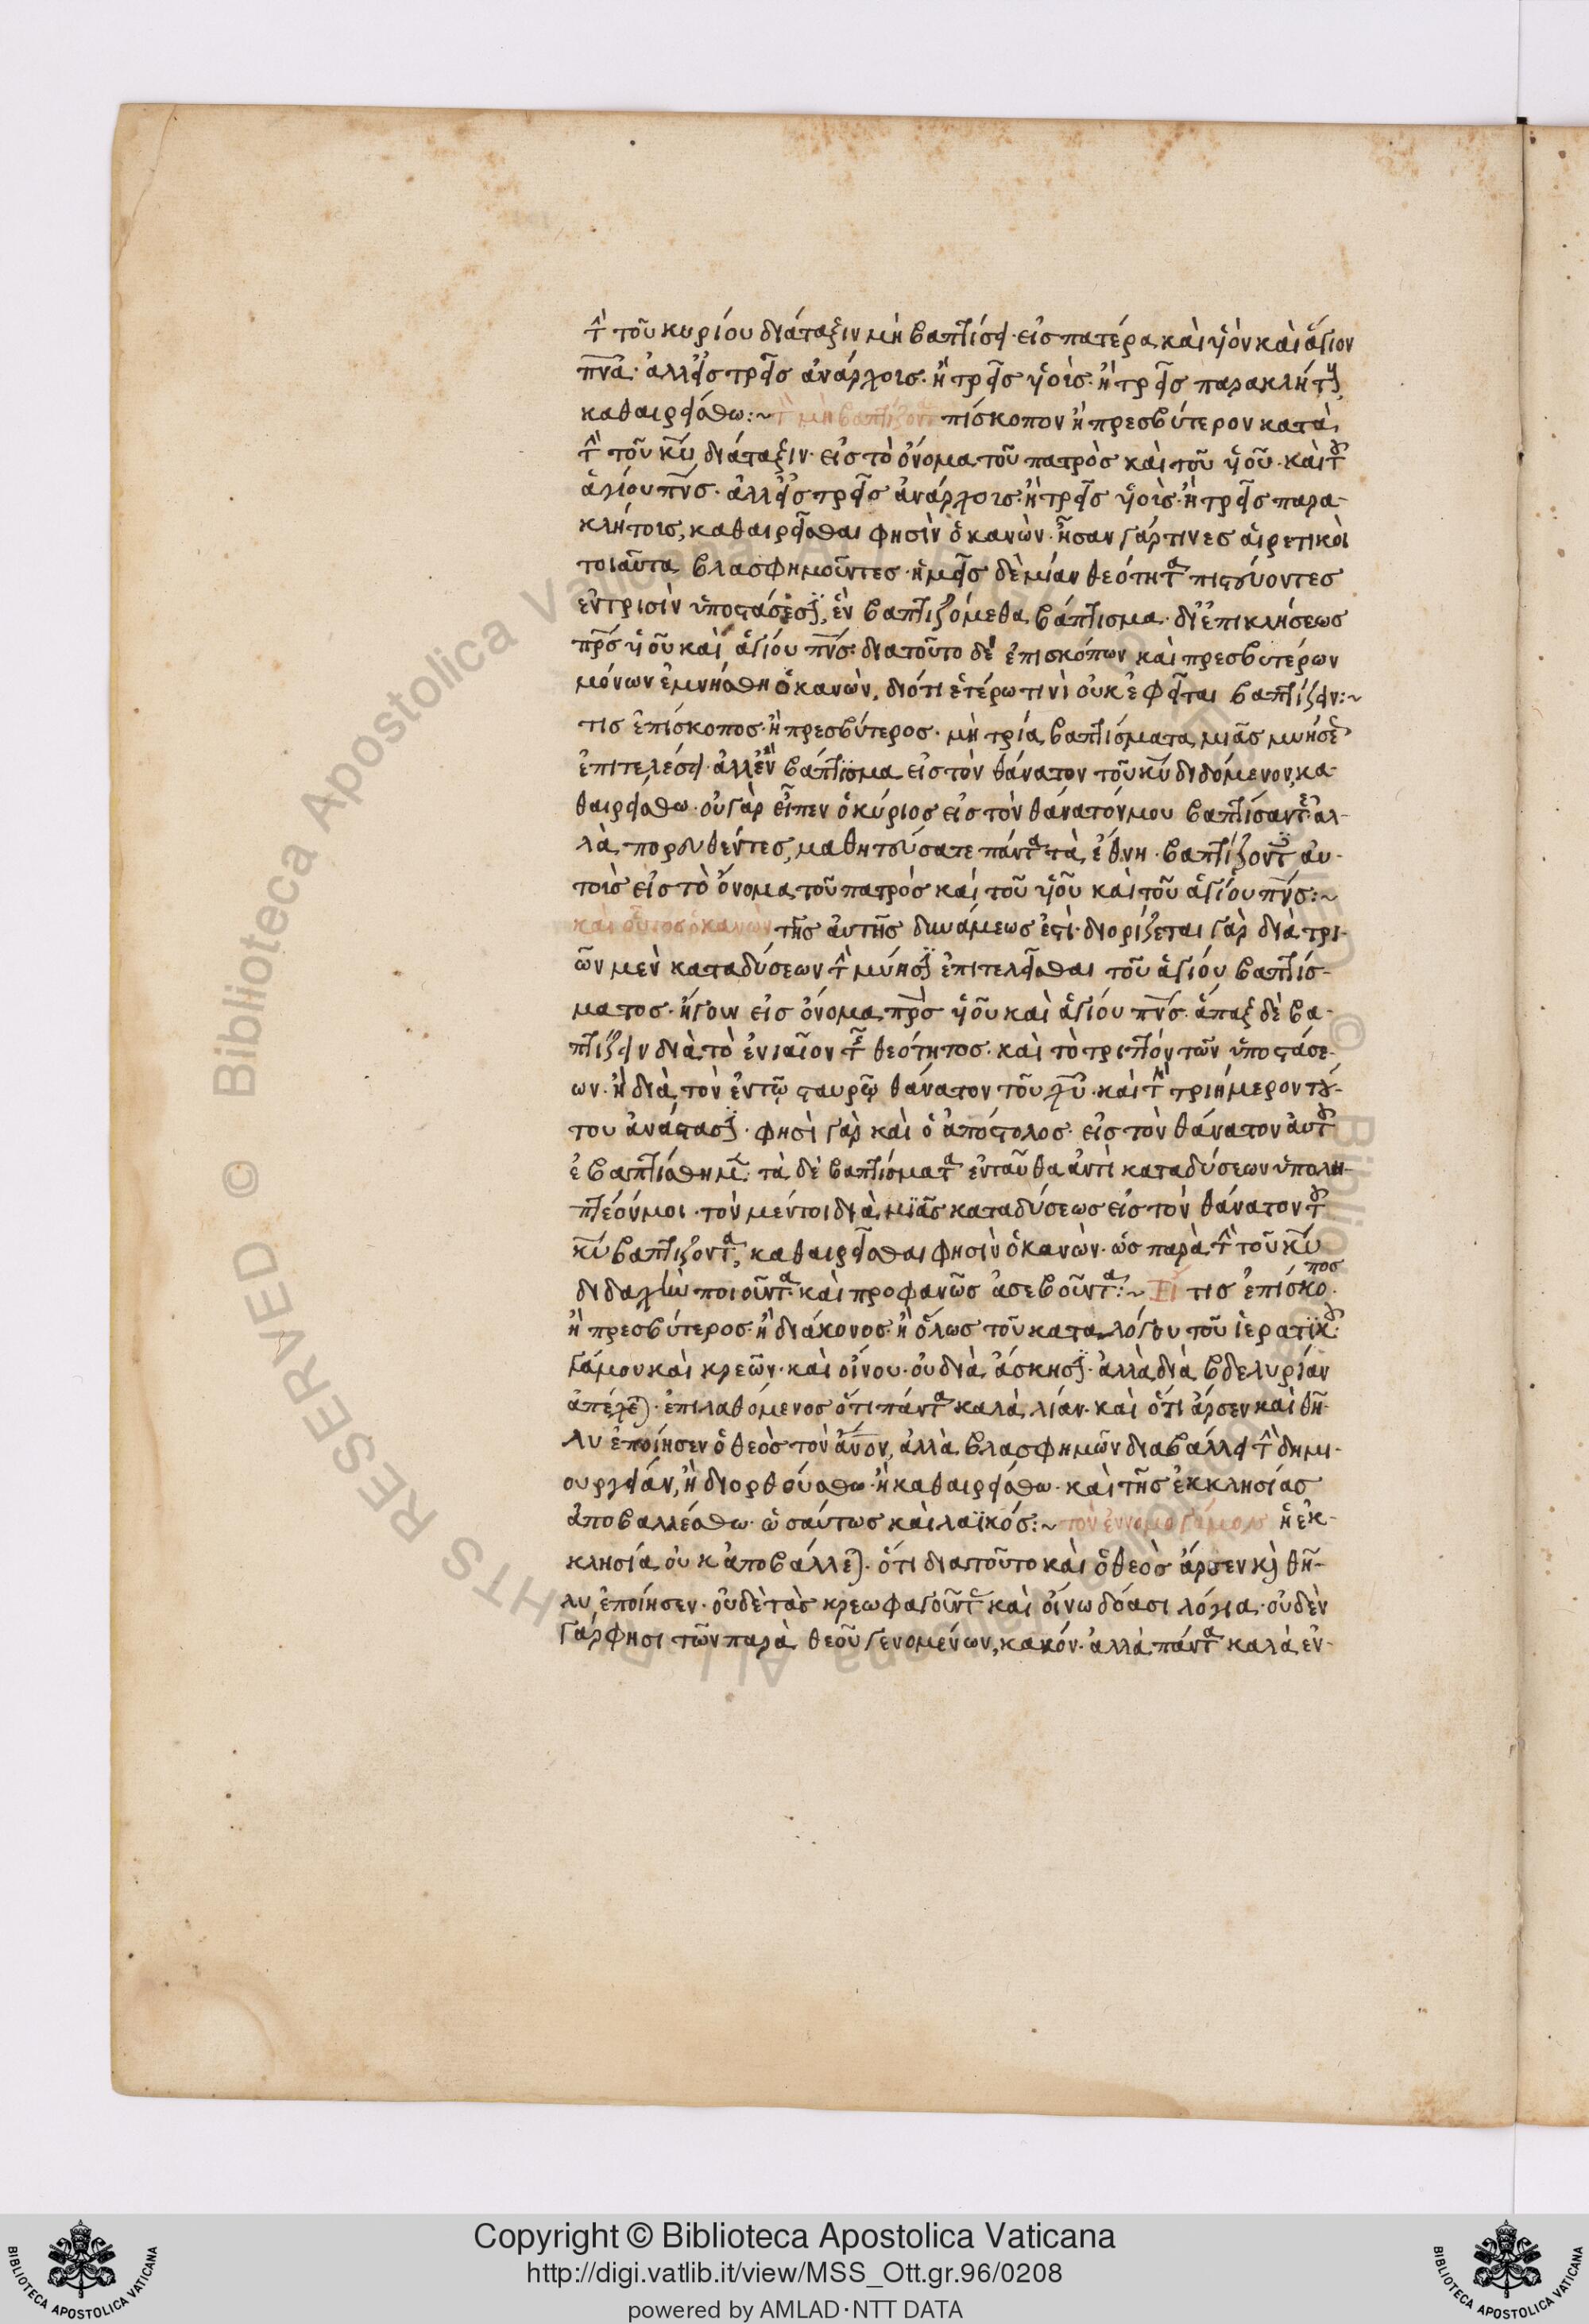 τὴν τοῦ κυρίου διάταξιν μὴ βαπτίσει· εἰς πατέρα καὶ υἱὸν καὶ ἅγιον
πνα· ἀλλ' εἰς τρεῖς ἀνάρχους· ἢ τρεῖς υἱοὺς· ἢ τρεῖς παρακλήτους,
καθαιρείσθω:~ τὸν μὴ βαπτίζοντα πίσκοπον ἢ πρεσβύτερον κατὰ
τὴν τοῦ κυ διάταξιν· εἰς τὸ ὄνομα τοῦ πατρὸς καὶ τοῦ υἱοῦ· καὶ τοῦ
ἁγίου πνς· ἀλλ' εἰς τρεῖς ἀνάρχους· ἢ τρεῖς υἱοὺς· ἢ τρεῖς παρα-
κλήτους, καθαιρεῖσθαι φησὶν ὁ κανὼν· ἦσαν γάρ τινες αἱρετικοὶ
τοιαῦτα βλασφημοῦντες· ἡμεῖς δὲ μίαν θεότητα πιστεύοντες
ἐν τρισὶν ὑποστάσεσιν, ἓν βαπτιζόμεθα βάπτισμα· δι' ἐπικλήσεως
πρς υἱοῦ καὶ ἁγίου πνς· διατοῦτο δὲ ἐπισκόπων καὶ πρεσβυτέρων
μόνων ἐμνήσθη ὁ κανὼν, διότι ἑτέρω τινὶ οὐκ ἐφεῖται βαπτίζειν:~
τις ἐπίσκοπος· ἢ πρεσβύτερος· μὴ τρία βαπτίσματα μιᾶς μυήσεως
ἐπιτελέσει· ἀλλ' ἓν βάπτισμα εἰς τὸν θάνατον τοῦ κυ διδόμενον, κα-
θαιρείσθω· οὐ γὰρ εἶπεν ὁ κύριος εἰς τὸν θάνατόν μου βαπτίσαντες· ἀλ-
λὰ πορευθέντες, μαθητεύσατε πάντα τὰ ἔθνη· βαπτίζοντες αὐ-
τοὺς εἰς τὸ ὄνομα τοῦ πατρὸς καὶ τοῦ υἱοῦ καὶ τοῦ ἁγίου πνς:~
καὶ οὗτος ὁ κανὼν τῆς αὐτῆς δυνάμεως ἐστὶ· διορίζεται γὰρ διὰ τρι-
ῶν μὲν καταδύσεων τὴν μύησιν ἐπιτελεῖσθαι τοῦ ἁγίου βαπτίσ-
ματος· ἤγουν εἰς ὄνομα πρς υἱοῦ καὶ ἁγίου πνς· ἅπαξ δὲ βα-
πτίζειν διὰ τὸ ἑνιαῖον τῆς θεότητος· καὶ τὸ τριττὸν τῶν ὑποστάσε-
ων· ἢ διὰ τὸν ἐν τῷ σταυρῷ θάνατον τοῦ χυ· καὶ τὴν τριήμερον τού-
του ἀνάστασιν· φησὶ γὰρ καὶ ὁ ἀπόστολος· εἰς τὸν θάνατον αὐτοῦ
ἐβαπτίσθημεν· τὰ δὲ βαπτίσματα ἐνταῦθα ἀντὶ καταδύσεων ὑπολη-
πτέον μοι· τὸν μέντοι διὰ μιᾶς καταδύσεως εἰς τὸν θάνατον τοῦ
κυ βαπτίζοντα, καθαιρεῖσθαι φησὶν ὁ κανὼν· ὡς παρὰ τὴν τοῦ κυ
διδαχὴν ποιοῦντα· καὶ προφανῶς ἀσεβοῦντα:~ Εἴ τις ἐπίσκοπος
ἢ πρεσβύτερος· ἢ διάκονος· ἢ ὅλως τοῦ καταλόγου τοῦ ἱερατικοῦ·
γάμου καὶ κρεῶν· καὶ οἴνου· οὐ διὰ ἄσκησιν· ἀλλὰ διὰ βδελυρίαν
ἀπέχεται· ἐπιλαθόμενος ὅτι πάντα καλὰ λίαν· καὶ ὅτι ἄρσεν καὶ θῆ-
λυ ἐποίησεν ὁ θεὸς τὸν ἄνον, ἀλλὰ βλασφημῶν διαβάλλει τὴν δημι-
ουργείαν, ἢ διορθούσθω· ἢ καθαιρείσθω· καὶ τῆς ἐκκλησίας
ἀποβαλλέσθω· ὡσαύτως καὶ λαϊκός:~ τὸν ἔννομο γάμους ἡ ἐκ-
κλησία οὐκ ἀποβάλλεται· ὅτι διατοῦτο καὶ ὁ θεὸς ἄρσεν καὶ θῆ-
λυ ἐποίησεν· οὐδὲ τὰς κρεωφαγοῦντες καὶ οἴνω δόασι λόγια· οὐδὲν
γάρ φησι τῶν παρὰ θεοῦ γενομένων, κακόν· ἀλλὰ πάντα καλὰ ἐν-
Copyright © Biblioteca Apostolica Vaticana
http://digi.vatlib.it/view/MSS_Ott.gr.96/0208
powered by AMLAD·NTT DATA